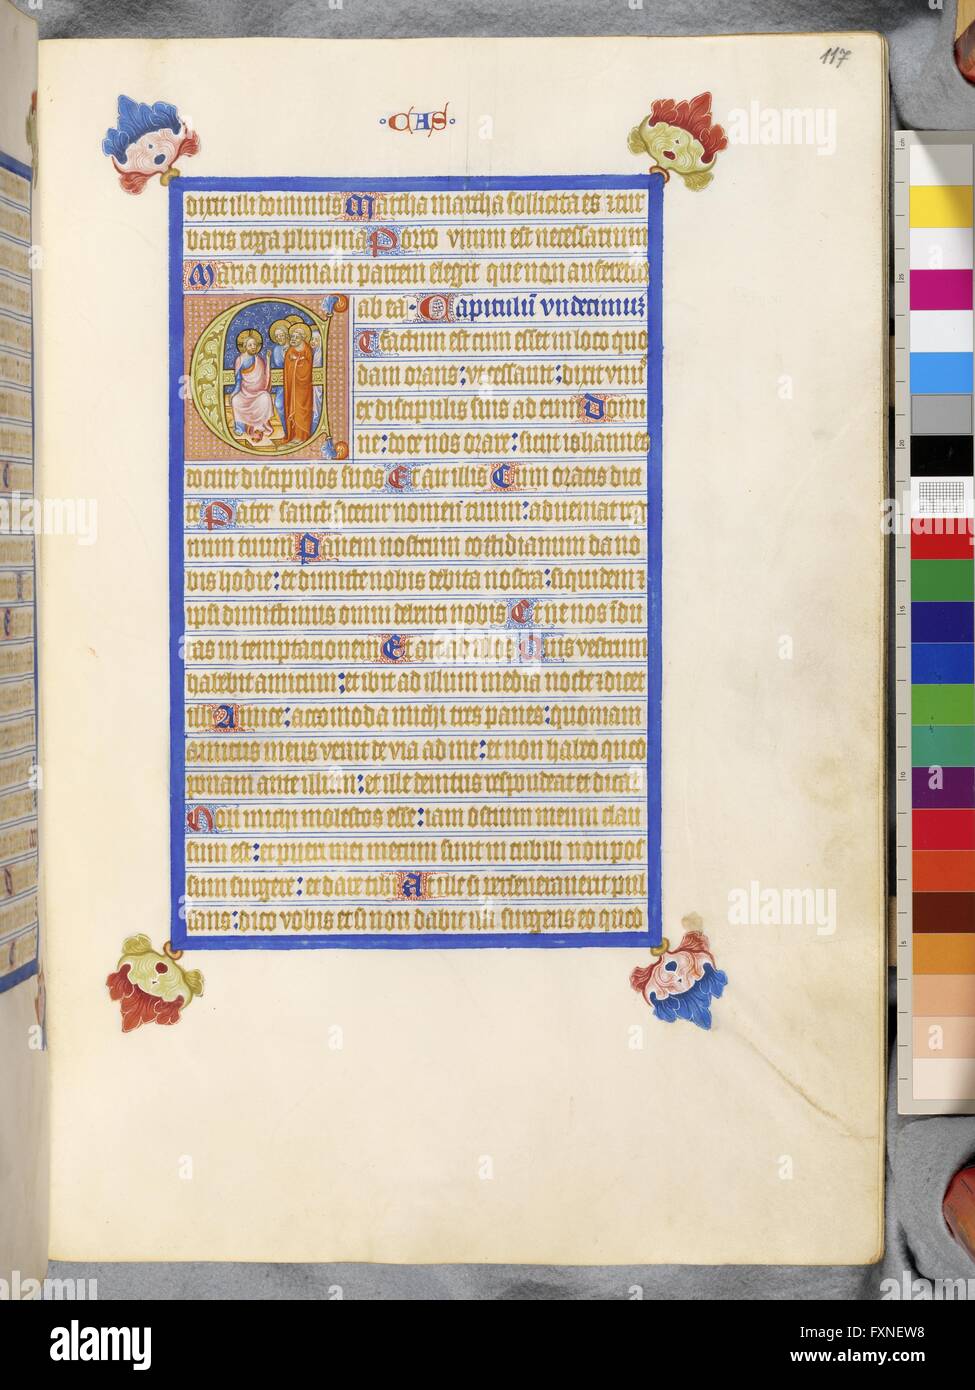 117
·CAS·
dixit illi dominus Martha martha sollicita es et tur
baris erga plurima Porro vnum est necessarium
Maria optimam partem elegit que non auferetur
ab ea· Capitulu̅ vndecimuz
Et factum est cum esset in loco quo
dam orans : vt cessauit : dixit vnus
ex discipulis suis ad eum Domi
ne : doce nos orare : sicut iohannes
docuit discipulos suos Et ait illis Cum oratis dici
te Pater sanctificetur nomen tuum : adueniat reg
num tuum Panem nostrum cottidianum da no
bis hodie : et dimitte nobis debita nostra : siquidem et
ipsi dimittimus omni debenti nobis Et ne nos indu
cas in temptacionem Et ait ad illos Quis vestrum
habebit amicum : et ibit ad illum media nocte et dicet
illi Amice : accomoda michi tres panes : quoniam
amicus meus venit de via ad me : et non habeo quod
ponam ante illum : et ille deintus respondeat et dicat
Non michi molestus esse : iam ostium meum clau
sum est : et pueri mei mecum sunt in cubili non pos
sum surgere : et dare tibi At ille si perseuerauerit pul
sans : dico vobis etsi non dabit illi surgens eo quod
alamy
Image ID: FXNEW8
www.alamy.com